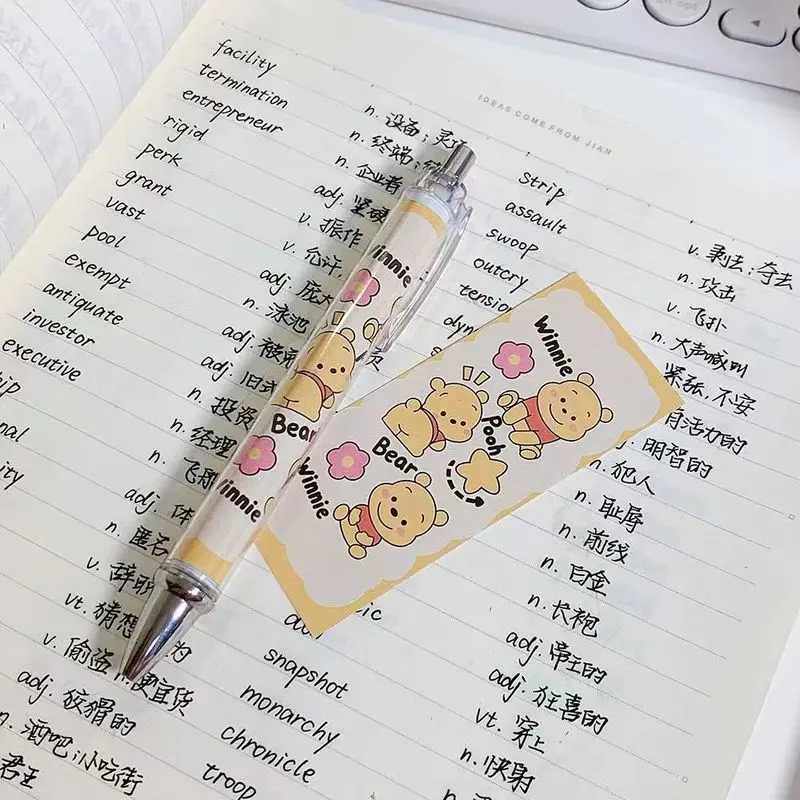 IDEAS COME FROM JIAN
facility
termination
entrepreneur
rigid
perk
grant
vast
pool
exempt
antiquate
investor
executive
n. 设备;
n. 终端;
n. 企业者
adj. 坚硬
v. 振作
v. 允许,
adj. 庞大
n. 泳池
adj.
adj. 旧
n. 投资
n. 经理
n. 飞船
adj. 体
n. 匿名
v. 辞
vt. 猜想
v. 偷盗
便宜货
adj. 狡猾的
n. 酒吧;小吃街
君王
strip
assault
swoop
outcry
tension
snapshot
monarchy
chronicle
troop
v. 剥去;夺去
n. 攻击
v. 飞扑
n. 大声喊叫
紧张,不安
有活力的
明智的
n. 犯人
n. 耻辱
n. 前线
n. 白金
n. 长袍
adj. 帝王的
adj. 狂喜的
vt. 穿上
n. 快射
Winnie
Bear
Winnie
Winnie
Pooh
Bear
Winnie